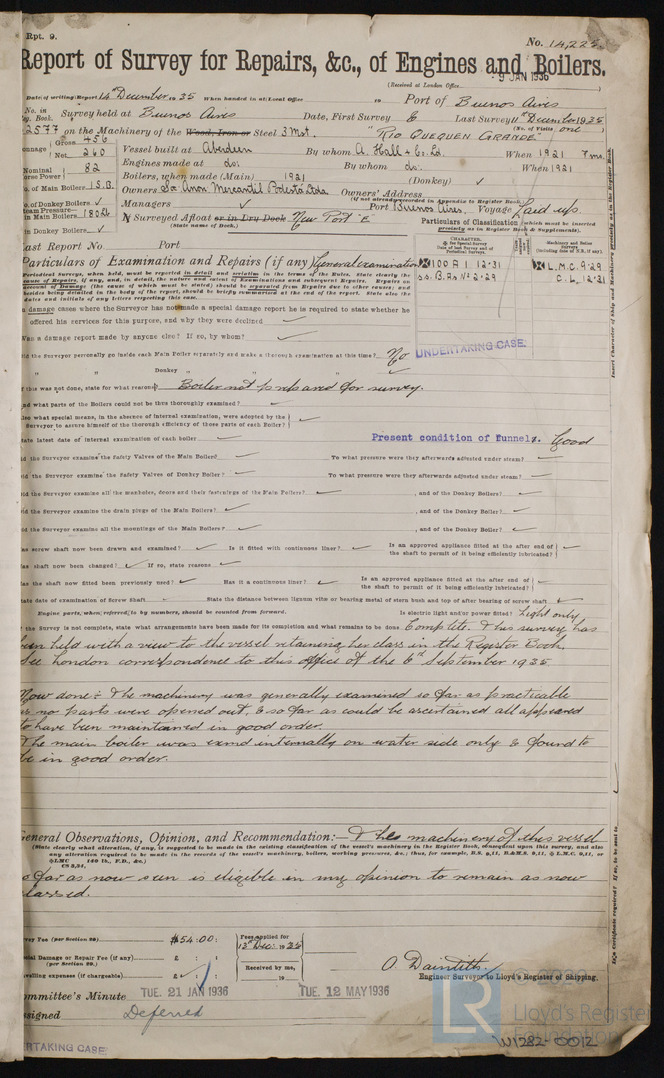 Rpt. 9.
No. 14,225.
Report of Survey for Repairs, &c., of Engines and Boilers.
9 JAN 1936
(Received at London Office
Date of writing Report 14th December 1935 When handed in at Local Office 19 Port of Buenos Aires
No. in Survey held at Buenos Aires Date, First Survey & Last Survey 11th December 1935
Book. (No. of Visits one)
2577 on the Machinery of the Wood, Iron or Steel 3 Mst. "RIO QUEQUEN GRANDE"
Gross 456
Net 260 Vessel built at Aberdeen By whom A. Hall & Co. Ld. When 1921 7 mo.
Nominal Horse Power 82 Engines made at do. By whom do. When 1921
Boilers, when made (Main) 1921 (Donkey) ✓
No. of Main Boilers 1 S.B. Owners Soc Anon Mercantil Bolesta Ltda Owners' Address
(if not already recorded in Appendix to Register Book.)
No. of Donkey Boilers ✓ Managers ✓ Port Buenos Aires, Voyage Laid up.
Steam Pressure— in Main Boilers 180 lb
in Donkey Boilers ✓ Surveyed Afloat or in Dry Dock New Port "E"
(State name of Dock.)
Particulars of Classification (which must be inserted precisely as in Register Book & Supplement)
Last Report No Port
CHARACTER.
Machinery and Boiler Surveys
Particulars of Examination and Repairs (if any) General examination
100 A 1. 12-31
L.M.C. 9.29
s.s. B.As No 2-29
C.L. 12-31
Periodical Surveys, when held, must be reported in detail and seriatim in the terms of the Rules. State clearly the
cause of Repairs, if any, and, in detail, the nature and extent of Examinations and subsequent Repairs. Repairs on
account of Damage (the cause of which must be stated) should be separated from Repairs due to other causes; and
besides being detailed in the body of the report, should be briefly summarized at the end of the report. State also the
dates and initials of any letters respecting this case.
Insert Character of Ship and Machinery precisely as in the Register Book.
UNDERTAKING CASE.
In damage cases where the Surveyor has not made a special damage report he is required to state whether he
offered his services for this purpose, and why they were declined ✓
Was a damage report made by anyone else? If so, by whom? ✓
Did the Surveyor personally go inside each Main Boiler separately and make a thorough examination at this time? No
" " Donkey " " " " ✓
If this was not done, state for what reasons Boiler not prepared for survey.
And what parts of the Boilers could not be thus thoroughly examined? ✓
Also what special means, in the absence of internal examination, were adopted by the Surveyor to assure himself of the thorough efficiency of those parts of each Boiler? ✓
State latest date of internal examination of each boiler ✓ Present condition of Funnels. Good
Did the Surveyor examine the Safety Valves of the Main Boilers? ✓ To what pressure were they afterwards adjusted under steam? ✓
Did the Surveyor examine the Safety Valves of Donkey Boiler? ✓ To what pressure were they afterwards adjusted under steam? ✓
Did the Surveyor examine all the manholes, doors and their fastenings of the Main Boilers? ✓, and of the Donkey Boilers? ✓
Did the Surveyor examine the drain plugs of the Main Boilers? ✓, and of the Donkey Boiler? ✓
Did the Surveyor examine all the mountings of the Main Boilers? ✓, and of the Donkey Boiler? ✓
Has screw shaft now been drawn and examined? ✓ Is it fitted with continuous liner? ✓ Is an approved appliance fitted at the after end of the shaft to permit of it being efficiently lubricated? ✓
Has shaft now been changed? ✓ If so, state reasons ✓
Has the shaft now fitted been previously used? ✓ Has it a continuous liner? ✓ Is an approved appliance fitted at the after end of the shaft to permit of it being efficiently lubricated? ✓
State date of examination of Screw Shaft ✓ State the distance between lignum vitæ or bearing metal of stern bush and top of after bearing of screw shaft ✓
Engine parts, when referred to by numbers, should be counted from forward. Is electric light and/or power fitted? Light only
If the Survey is not complete, state what arrangements have been made for its completion and what remains to be done. Complete. This survey has
been held with a view to the vessel retaining her class in the Register Book,
See London correspondence to this office of the 6th September 1935
Now done:- The machinery was generally examined so far as practicable
as no parts were opened out, & so far as could be ascertained all appeared
to have been maintained in good order.
The main boiler was exmd internally on water side only & found to
be in good order.
General Observations, Opinion, and Recommendation:— The machinery of this vessel
(State clearly what alteration, if any, is suggested to be made in the existing classification of the vessel's machinery in the Register Book, consequent upon this survey, and also
any alteration required to be made in the records of the vessel's machinery, boilers, working pressures, &c.; thus, for example, B.S. 9,11, B.&M.S. 9,11, L.M.C. 9,11, or
LMC 140 lb., F.D., &c.)
CS 3,34,
so far as now seen is eligible in my opinion to remain as now
classed.
Survey Fee (per Section 29) $54:00: Fees applied for
13th Dec: 1935
Special Damage or Repair Fee (if any) (per Section 29.) £ : :
Received by me,
Travelling expenses (if chargeable) £ : : 19
O. Dainteth.
Engineer Surveyor to Lloyd's Register of Shipping.
Committee's Minute TUE. 21 JAN 1936 TUE. 12 MAY 1936
Assigned Deferred
UNDERTAKING CASE
LR
Lloyd's Register
Foundation
W1282-0012